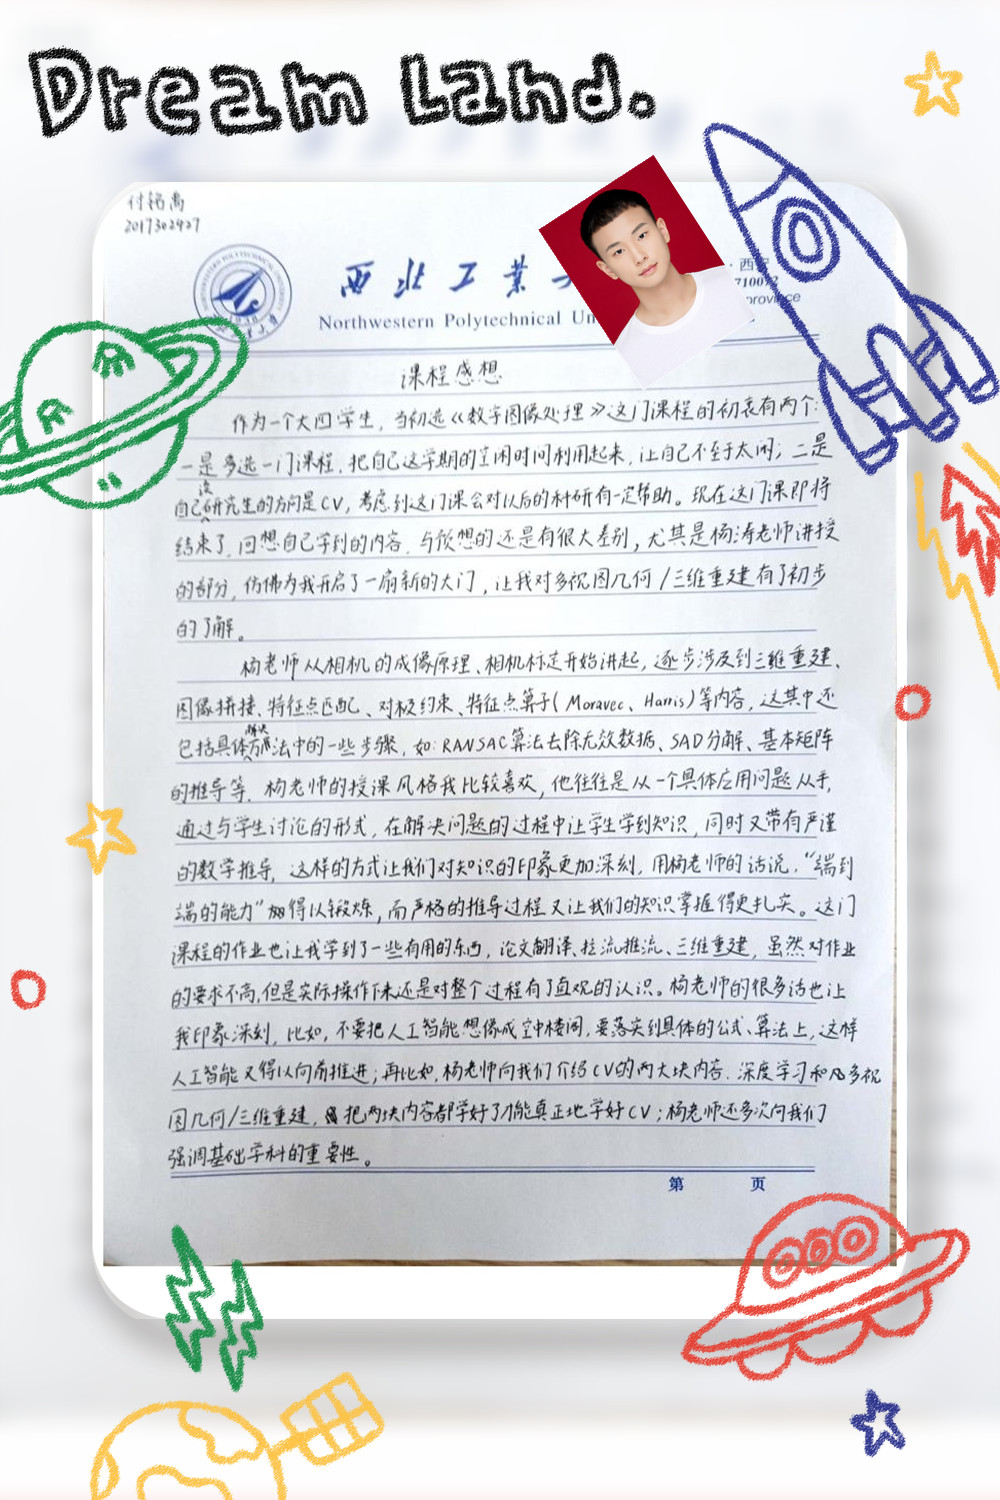 Dream Land.
付铭禹
2017302427
西北工业
Northwestern Polytechnical Un
·西安
710072
province
课程感想
作为一个大四学生，当初选《数字图像处理》这门课程的初衷有两个：
一是多选一门课程，把自己这学期的空闲时间利用起来，让自己不至于太闲；二是
自己研究生的方向是CV，考虑到这门课会对以后的科研有一定帮助。现在这门课即将
结束了，回想自己学到的内容，与预想的还是有很大差别，尤其是杨涛老师讲授
的部分，仿佛为我开启了一扇新的大门，让我对多视图几何/三维重建有了初步
的了解。
杨老师从相机的成像原理、相机标定开始讲起，逐步涉及到三维重建、
图像拼接、特征点匹配、对极约束、特征点算子(Moravec、Harris)等内容，这其中还
包括具体解决方法中的一些步骤，如：RANSAC算法去除无效数据、SAD分解、基本矩阵
的推导等。杨老师的授课风格我比较喜欢，他往往是从一个具体应用问题从手，
通过与学生讨论的形式，在解决问题的过程中让学生学到知识，同时又带有严谨
的数学推导，这样的方式让我们对知识的印象更加深刻，用杨老师的话说，“端到
端的能力”得以锻炼，而严格的推导过程又让我们的知识掌握得更扎实。这门
课程的作业也让我学到了一些有用的东西，论文翻译、拉流推流、三维重建，虽然对作业
的要求不高，但是实际操作下来还是对整个过程有了直观的认识。杨老师的很多话也让
我印象深刻，比如，不要把人工智能想像成空中楼阁，要落实到具体的公式、算法上，这样
人工智能又得以向前推进；再比如，杨老师向我们介绍CV的两大块内容：深度学习和多视
图几何/三维重建，把两块内容都学好了才能真正地学好CV；杨老师还多次向我们
强调基础学科的重要性。
第 页